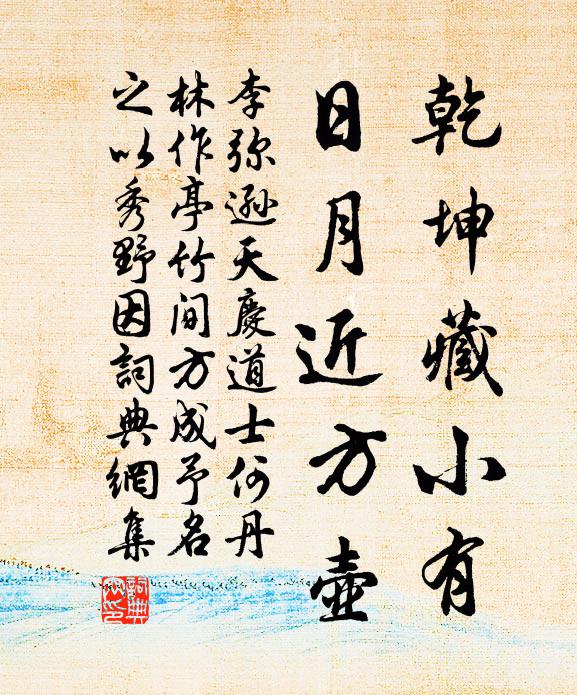 乾坤藏小有
日月近方壺
李弥遜天慶道士何丹
林作亭竹間方成予名
之以秀野因詞典網集